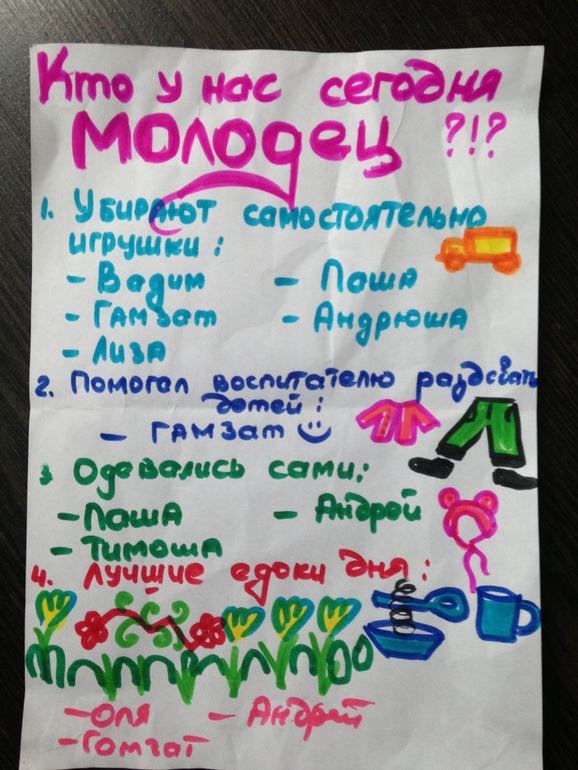 Кто у нас сегодня
молодец ?!?
1. Убирают самостоятельно
игрушки:
- Вадим - Паша
- Гамзат - Андрюша
- Лиза
2. Помогал воспитателю раздевать
детей:
- Гамзат
3 Одевались сами:
- Паша - Андрей
- Тимоша
4. Лучшие едоки дня:
- Оля - Андрей
- Гамзат